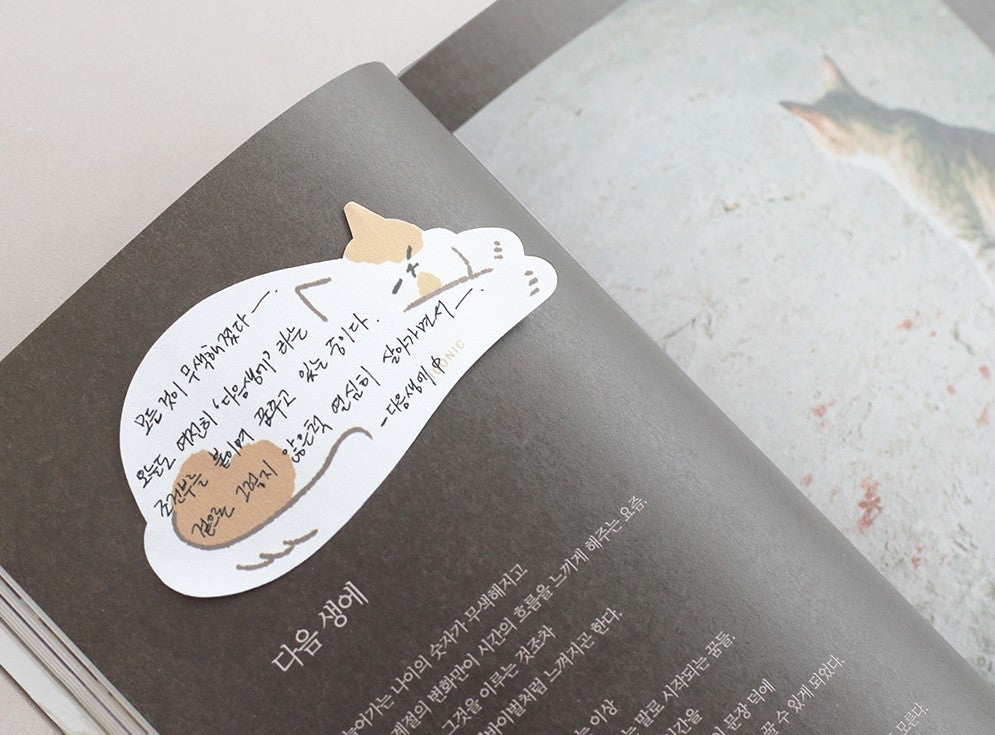 모든 것이 무색해졌다 —.
오늘도 여전히 '다음생에' 라는
조건부를 붙이며 꿈꾸고 있는 중이다.
겉으로 그렇지 않은척 열심히 살아가면서 —.
- 다음생에 中
ONIC
다음 생에
늘어가는 나이의 숫자가 무색해지고
계절의 변화만이 시간의 흐름을 느끼게 해주는 요즘,
그것을 이루는 것조차
느껴지곤 한다.
는 이상
는 말로 시작되는 꿈들.
시간을
이 문장 덕에
꿀 수 있게 되었다.
모른다.